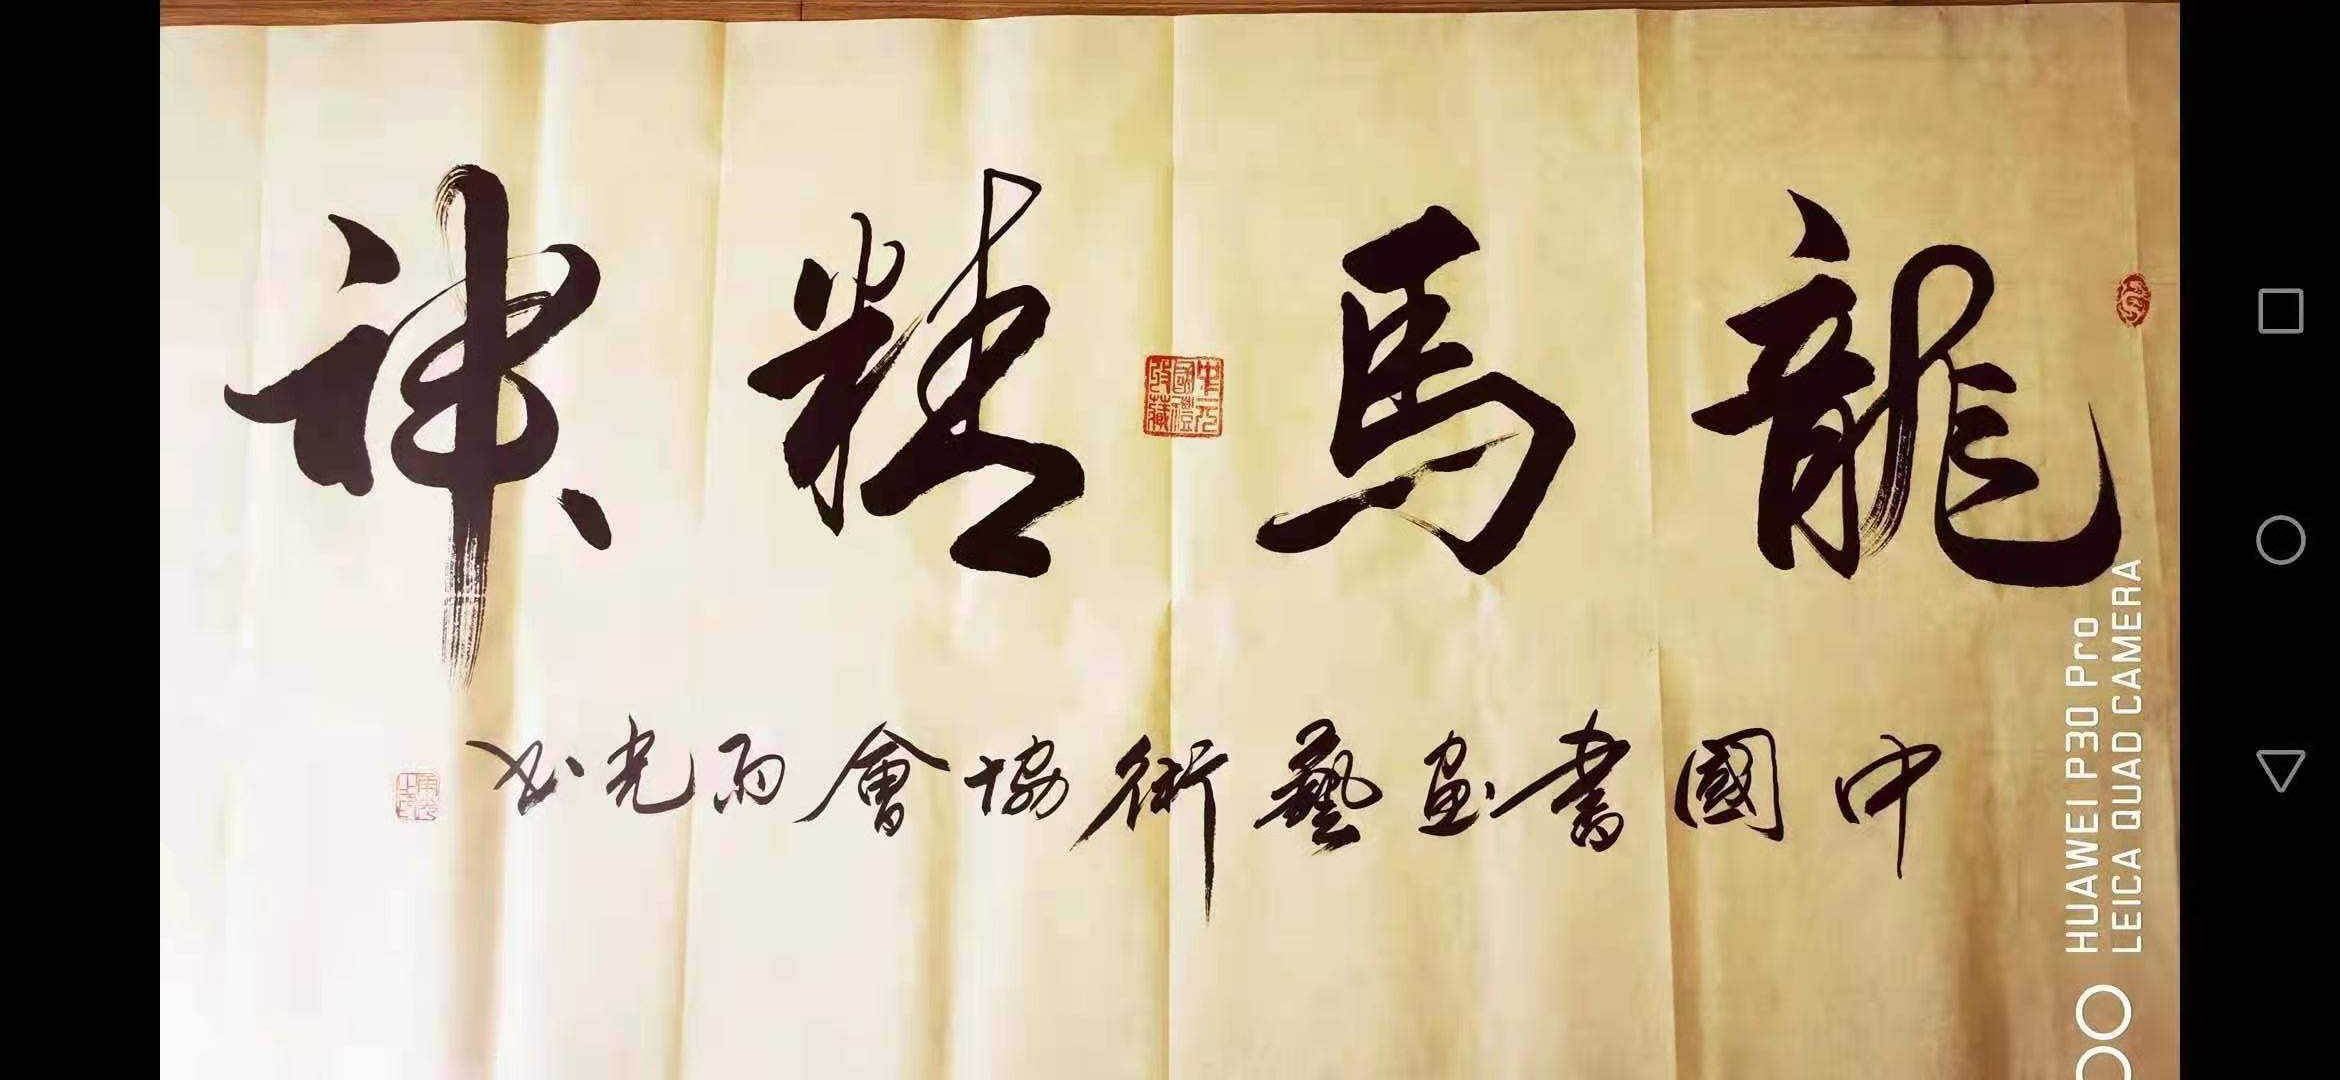 龍馬精神
中國書画藝術協會雨光书
HUAWEI P30 Pro
LEICA QUAD CAMERA